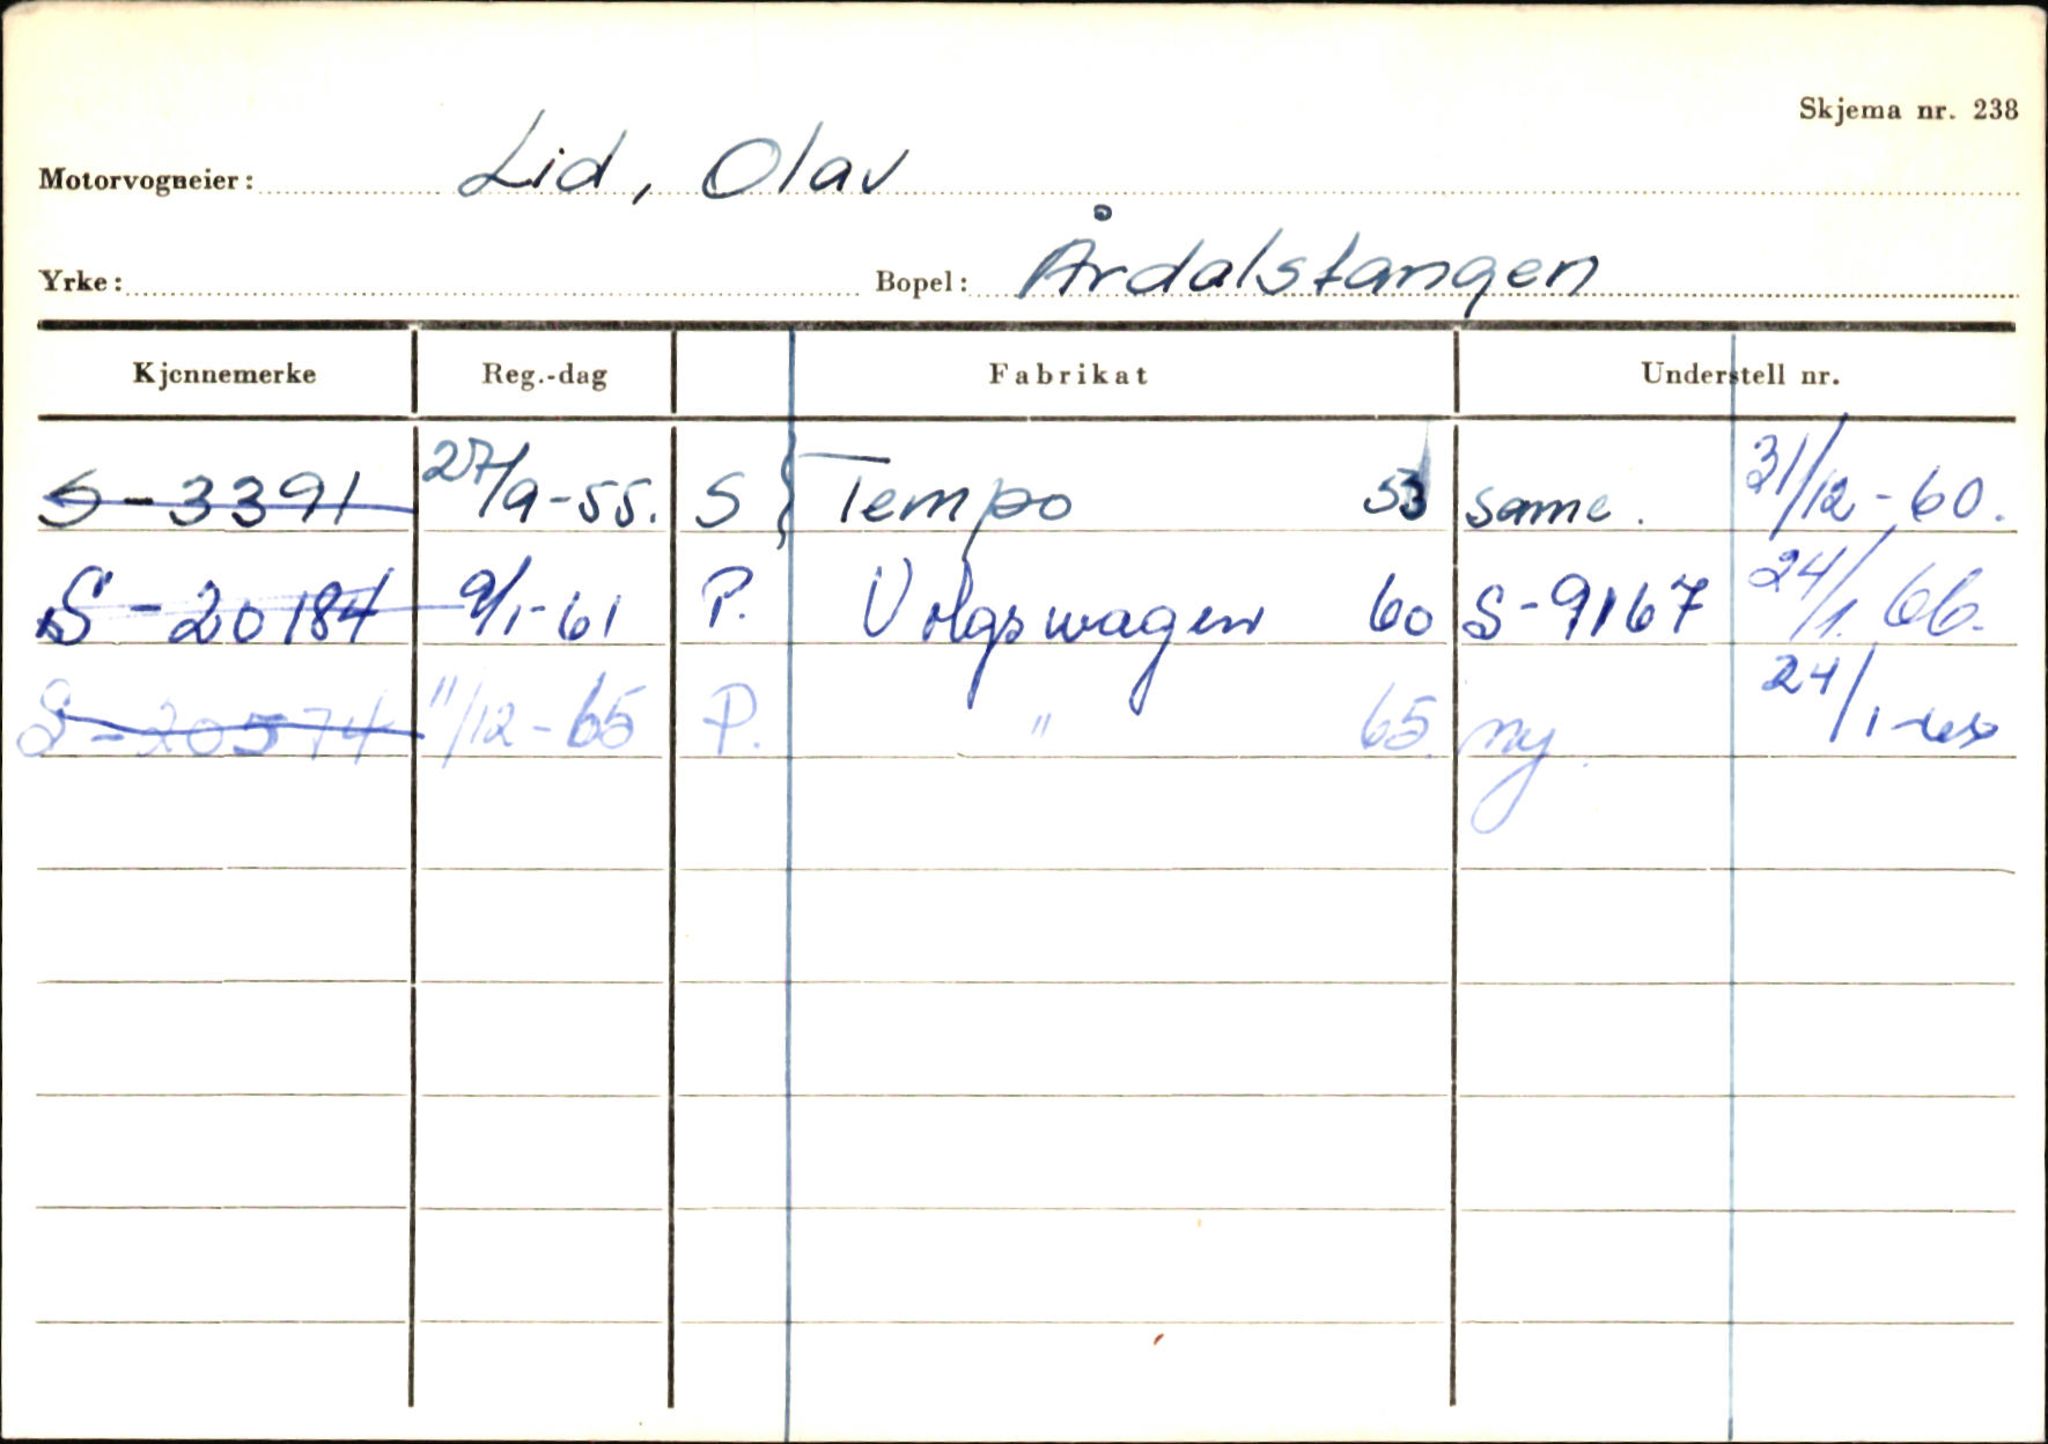 Skjema nr. 238
Motorvogneier: Lid, Olav
Yrke: Bopel: Årdalstangen
Kjennemerke Reg.-dag Fabrikat Understell nr.
S-3391 27/9-55. S } Tempo 53 same. 31/12-60.
S-20184 9/1-61 P. Volgswagen 60 S-9167 24/1. 66.
S-20574 11/12-65 P. " 65. ny. 24/1-